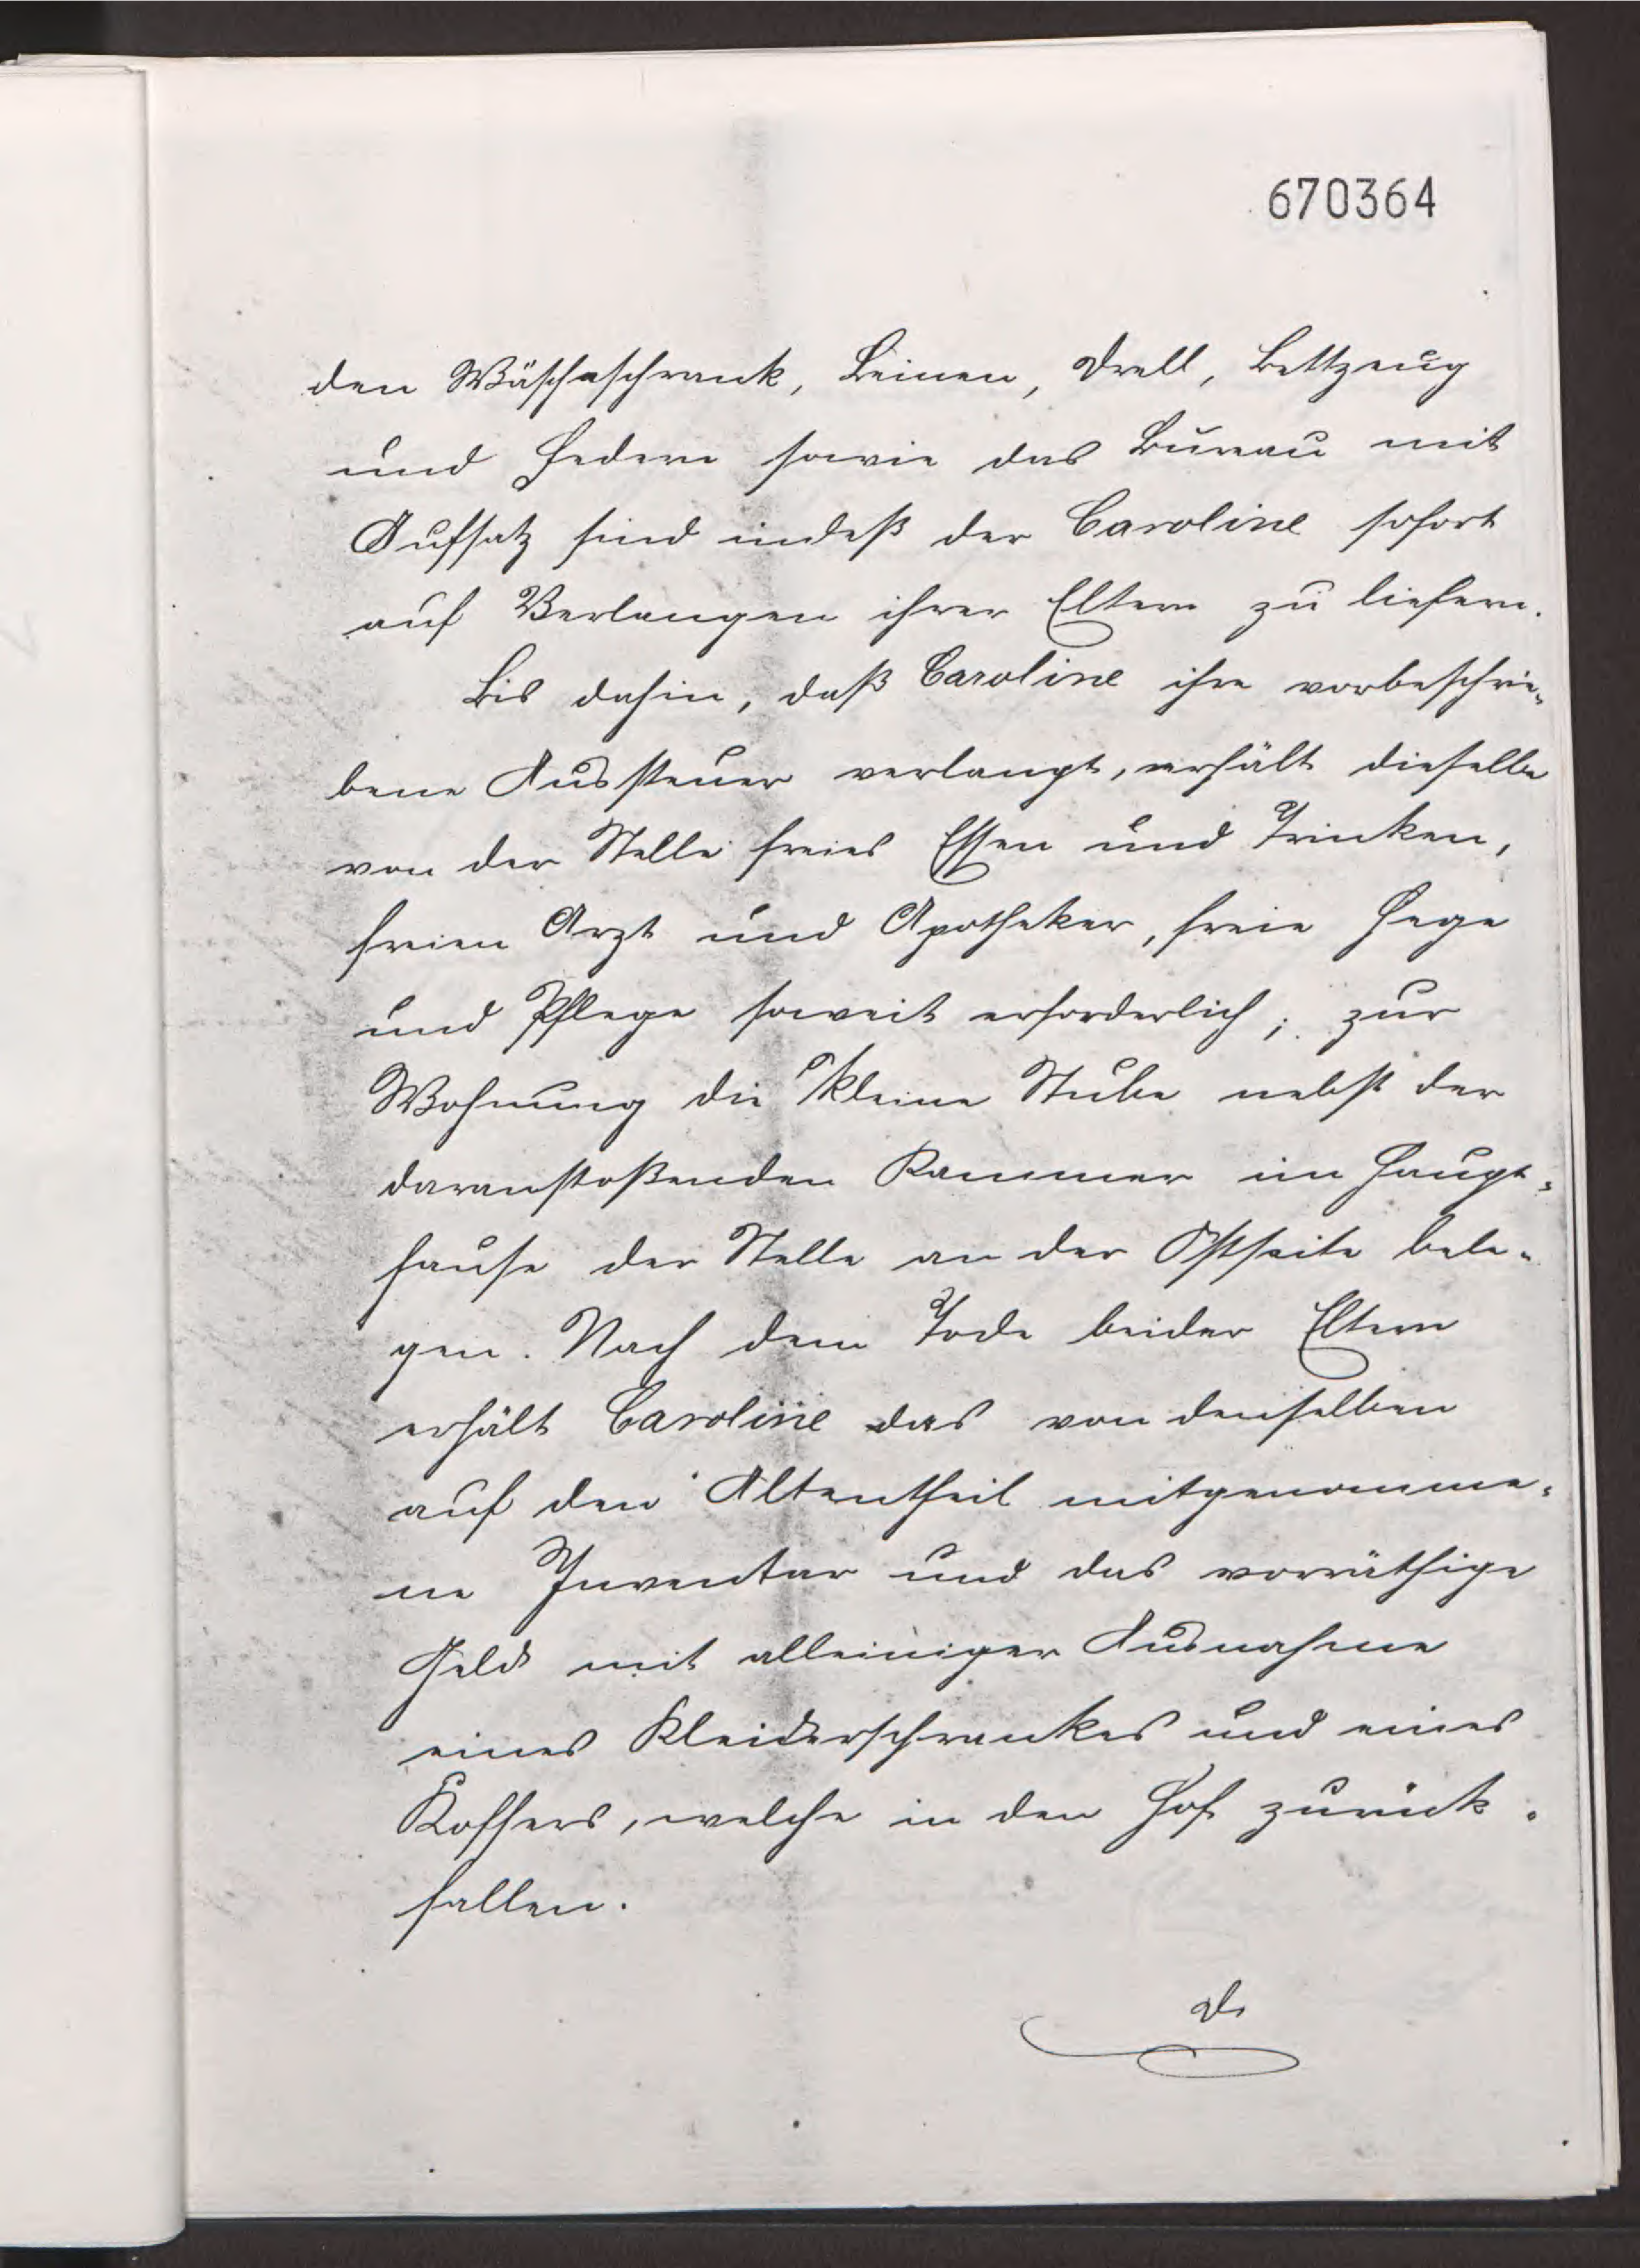 670364
den Wäscheschrank, Leinen, Drell, Bettzeug
und Federn sowie das Bureau mit
Aufsatz sind indeß der Caroline sofort
auf Verlangen ihrer Eltern zu liefern.
Bis dahin, daß Caroline ihre vorbeschrie-
bene Aussteuer verlangt, erhält dieselbe
von der Stelle freies Essen und Trinken,
freien Arzt und Apotheker, freie Hege
und Pflege soweit erforderlich; zur
Wohnung die kleine Stube nebst der
daranstoßenden Kammer im Haupt-
hause der Stelle an der Ostseite bele-
gen. Nach dem Tode beider Eltern
erhält Caroline das von denselben
auf den Altentheil mitgenomme-
ne Inventar und das vorräthige
Geld mit alleiniger Ausnahme
eines Kleiderschrankes und eines
Koffers, welche in den Hof zurück-
fallen.